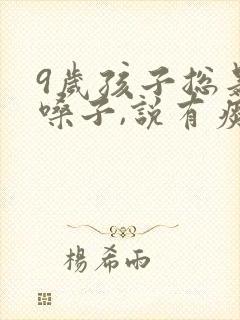 9歲孩子总是
嗓子,說有痰
楊希雨